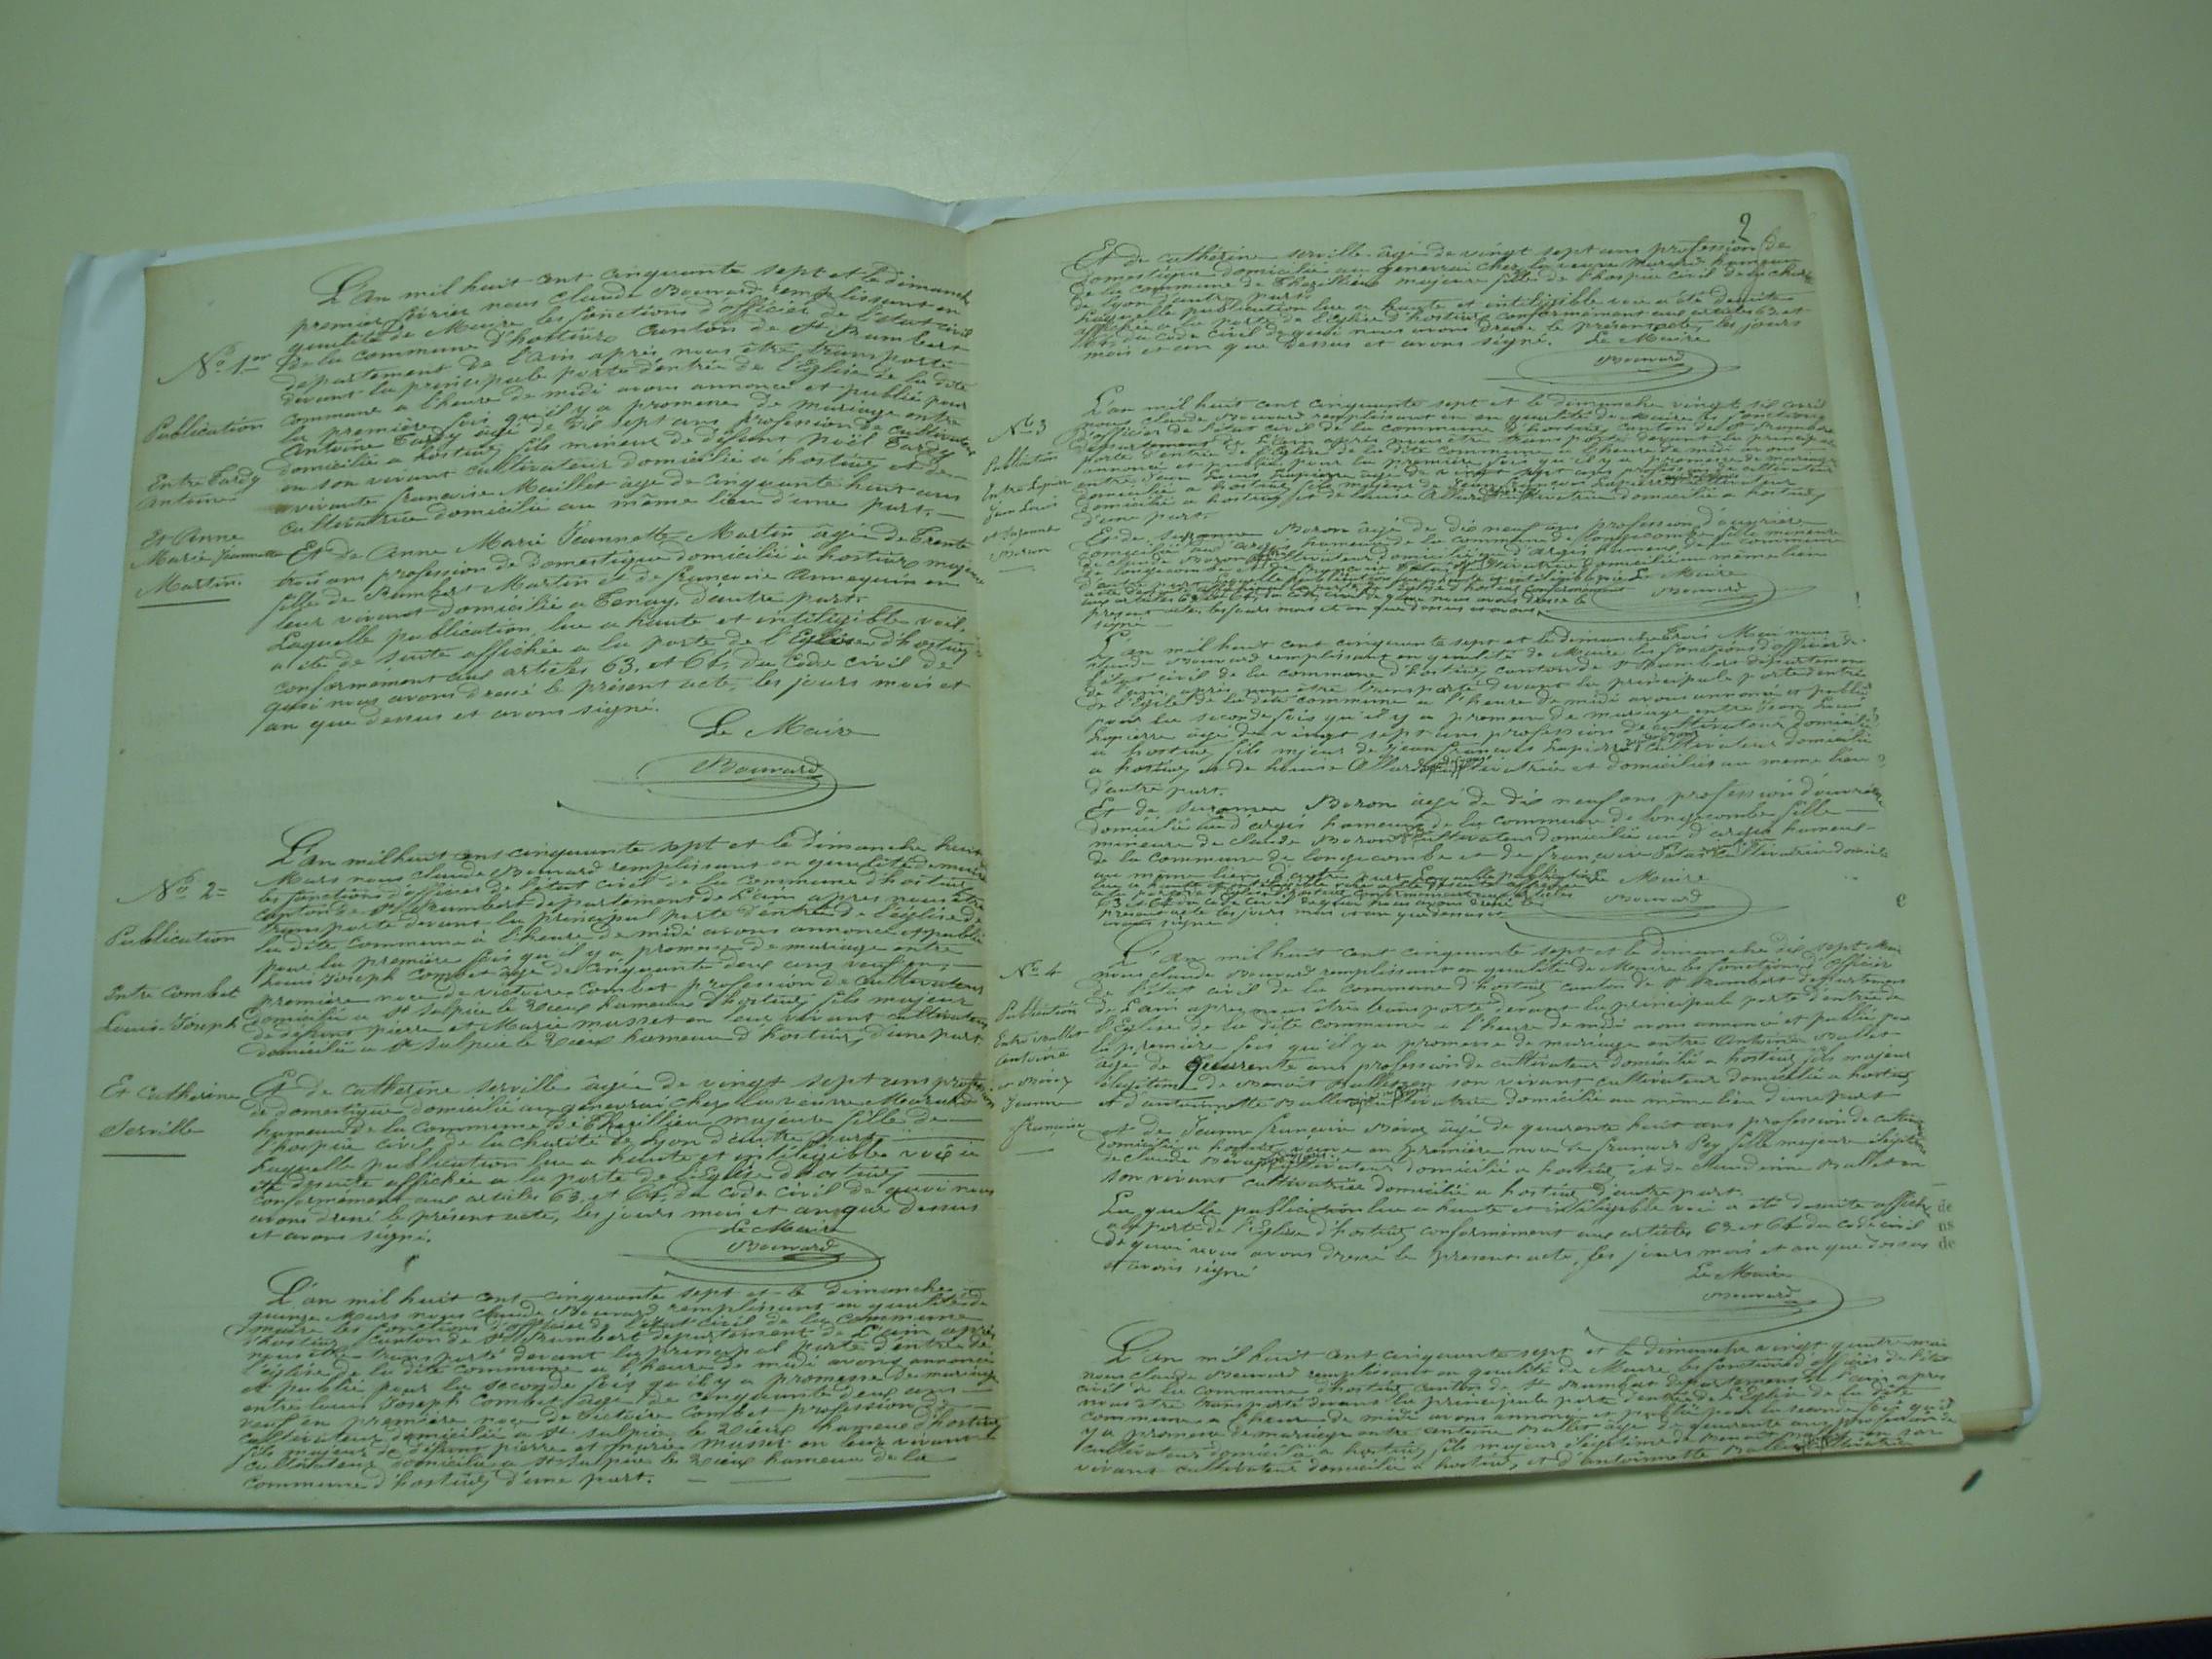 L'An mil huit cent cinquante sept et le dimanche
premier février nous Claude Bouvard remplissant en
qualité de Maire les fonctions d'officier de l'état civil
de la commune d'hostiaz canton de St Rambert
département de l'ain après nous être transporté
devant la principale porte d'entrée de l'Eglise de la dite
commune a l'heure de midi avons annoncé et publié pour
la première fois qu'il y a promesse de mariage entre
Antoine Tardy âgé de dix sept ans profession de cultivateur
domicilié a hostiaz fils mineur de défunt Noël Tardy
en son vivant cultivateur domicilié a hostiaz et de
vivante françoise Maillet âgé de cinquante huit ans
cultivatrice domicilié au même lieu d'une part.
No 1er
Publication
Entre Tardy
Antoine
Et Anne
Marie Jeannette
Martin.
Et de Anne Marie Jeannette Martin âgée de Trente
trois ans profession de domestique domicilié a hostiaz majeure
fille de Rambert Martin et de françoise Annequin en
leur vivant domicilié a Tenay, d'autre part.
Laquelle publication lue a haute et intelligible voix,
a été de suite affichée a la porte de l'Eglise d'hostiaz
conformement aux articles 63. et 64, du Code civil de
quoi nous avons dressé le présent acte, les jours mois et
an que dessus et avons signé.
Le Maire
Bouvard
L'an mil huit cent cinquante sept et le dimanche huit
Mars nous claude Bouvard remplissant en qualité de maire
les fonctions d'officier de l'état civil de la commune d'hostiaz
canton de St Rambert département de l'ain après nous être
transporté devant la principal porte d'entrée de l'église de
la dite commune à l'heure de midi avons annoncé et publié
pour la première fois qu'il y a promesse de mariage entre
Louis Joseph Combet âgé de cinquante deux ans veuf en
première noce de victoire Combet profession de cultivateur
domicilié a St Sulpice le vieux hameau d'hostiaz fils majeur
de défunt pierre et Marie musset en leur vivant cultivateur
domicilié a St Sulpice le vieux hameau d'hostiaz d'une part
No 2=
Publication
Entre Combet
Louis-Joseph
Et Catherine
Serville
Et de Catherine Serville âgée de vingt sept ans profession
de domestique domicilié au genevrai chez la veuve
hameau de la commune de Thezillieu majeure fille de
l'hospice civil de la charité de Lyon d'autre part
Laquelle publication lue a haute et intelligible voix a
été desuite affichée a la porte de l'Eglise d'hostiaz
conformément aux articles 63 et 64 du code civil de quoi nous
avons dressé le présent acte, les jours mois et an que dessus
et avons signé.
Le Maire
Bouvard
L'an mil huit cent cinquante sept et le dimanche
quinze Mars nous claude Bouvard remplissant en qualité de
maire les fonctions d'officier de l'état civil de la commune
d'hostiaz canton de St Rambert département de l'ain après
nous être transporté devant la principal porte d'entrée de
l'église de la dite commune a l'heure de midi avons annoncé
et publié pour la seconde fois qu'il y a promesse de mariage
entre Louis Joseph Combet âgé de cinquante deux ans
veuf en première noce de Victoire Combet profession de
cultivateur domicilié a St Sulpice le Vieux hameau d'hostiaz
fils majeur de défunt pierre et marie musset en leur vivant
cultivateur domicilié a St Sulpice le vieux hameau de la
commune d'hostiaz d'une part.
2
Et de Cathérine Serville âgé de vingt sept ans profession de
domestique domicilié au genevrai chez la veuve hameau
de la commune de Thezillieu majeure fille de l'hospice civil de la charité
de Lyon d'autre part.
Laquelle publication lue a haute et intelligible voix a été desuite
affichée a la porte de l'Eglise d'hostiaz conformément aux articles 63 et
64, du Code civil de quoi nous avons dressé le présent acte, les jours
mois et an que dessus et avons signé. Le Maire
Bouvard
L'an mil huit cent cinquante sept et le dimanche vingt six avril
nous claude Bouvard remplissant en qualité de Maire les fonctions
d'officier de l'état civil de la commune d'hostiaz canton de St Rambert
département de l'ain après nous être transporté devant la principale
porte d'entrée de l'Eglise de la dite commune a l'heure de midi avons
annoncé et publié pour la première fois qu'il y a promesse de mariage
entre Jean Louis Lapierre âgé de vingt sept ans profession de cultivateur
domicilié a hostiaz fils majeur de Jean françois Lapierre cultivateur
domicilié a hostiaz et de Louise Allard cultivatrice domicilié a hostiaz
d'une part.
No 3
Publication
Entre Lapierre
Jean Louis
et Suzanne
Boron
Et de Suzanne Boron âgé de dix neuf ans profession d'ouvrière
domicilié au d'argis hameau de la commune de longecombe fille mineure
de claude Boron cultivateur domicilié au d'argis hameau de la commune
de longecombe et de françoise cultivatrice domicilié au même lieu
d'autre part Laquelle publication lue a haute et intelligible voix Le Maire
Bouvard
présent acte, les jours mois et an que dessus et avons
signé
L'an mil huit cent cinquante sept et le dimanche trois Mai nous
claude Bouvard remplissant en qualité de Maire les fonctions d'officier de
l'état civil de la commune d'hostiaz canton de St Rambert département
de l'ain, après nous être transporté devant la principale porte d'entrée
de l'Eglise de la dite commune a l'heure de midi avons annoncé et publié
pour la seconde fois qu'il y a promesse de mariage entre Jean Louis
Lapierre âgé de vingt sept ans profession de cultivateur domicilié
a hostiaz fils majeur de Jean françois Lapierre cultivateur domicilié
a hostiaz et de Louise Allard cultivatrice et domiciliés au même lieu
d'autre part.
Et de Suzanne Boron âgé de dix neuf ans profession d'ouvrière
domicilié au d'argis hameau de la commune de longecombe fille
mineure de claude Boron cultivateur domicilié au d'argis hameau
de la commune de longecombe et de françoise cultivatrice domicilié
au même lieu d'autre part Laquelle publication Le Maire
Bouvard
63 et 64 du code civil de quoi nous avons dressé le
présent acte les jours mois et an que dessus et
avons signé
L'An mil huit cent cinquante sept et le dimanche dix sept Mai
nous claude Bouvard remplissant en qualité de Maire les fonctions d'officier
de l'état civil de la commune d'hostiaz canton de St Rambert département
de l'ain après nous être transporté devant la principale porte d'entrée de
l'Eglise de la dite commune a l'heure de midi avons annoncé et publié pour
la première fois qu'il y a promesse de mariage entre Antoine Ballet
âgé de Quarente ans profession de cultivateur domicilié a hostiaz fils majeur
légitime de Benoit Ballet en son vivant cultivateur domicilié a hostiaz
et d'antoinette Ballet cultivatrice domicilié au même lieu d'une part
No 4
Publication
Entre Ballet
Antoine
Jeanne
françoise
et de Jeanne françoise âgé de quarente huit ans profession de cultivatrice
domicilié a hostiaz veuve en première noce de françois Pey fille majeure légitime
de claude cultivateur domicilié a hostiaz et de Claudine Ballet en
son vivant cultivatrice domicilié a hostiaz d'autre part.
La quelle publication lue a haute et intelligible voix a été desuite affichée
a la porte de l'Eglise d'hostiaz conformément aux articles 63 et 64 du code civil
de quoi nous avons dressé le présent acte, les jours mois et an que dessus
et avons signé
Le Maire
Bouvard
L'An mil huit cent cinquante sept et le dimanche vingt quatre mai
nous claude Bouvard remplissant en qualité de Maire les fonctions d'officier de l'état
civil de la commune d'hostiaz canton de St Rambert département de l'ain après
nous être transporté devant la principale porte d'entrée de l'Eglise de la dite
commune a l'heure de midi avons annoncé et publié pour la seconde fois qu'il
y a promesse de mariage entre antoine Ballet âgé de quarente ans profession de
cultivateur domicilié a hostiaz fils majeur légitime de Benoit Ballet en son
vivant cultivateur domicilié a hostiaz, et d'antoinette Ballet cultivatrice